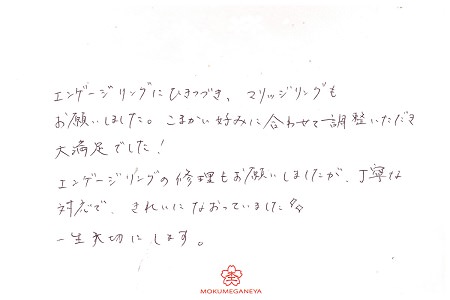 エンゲージリングにひきつづき、マリッジリングも
お願いしました。こまかい好みに合わせて調整いただき
大満足でした！
エンゲージリングの修理もお願いしましたが、丁寧な
対応で、きれいになおっていました
一生大切にします。
MOKUMEGANEYA